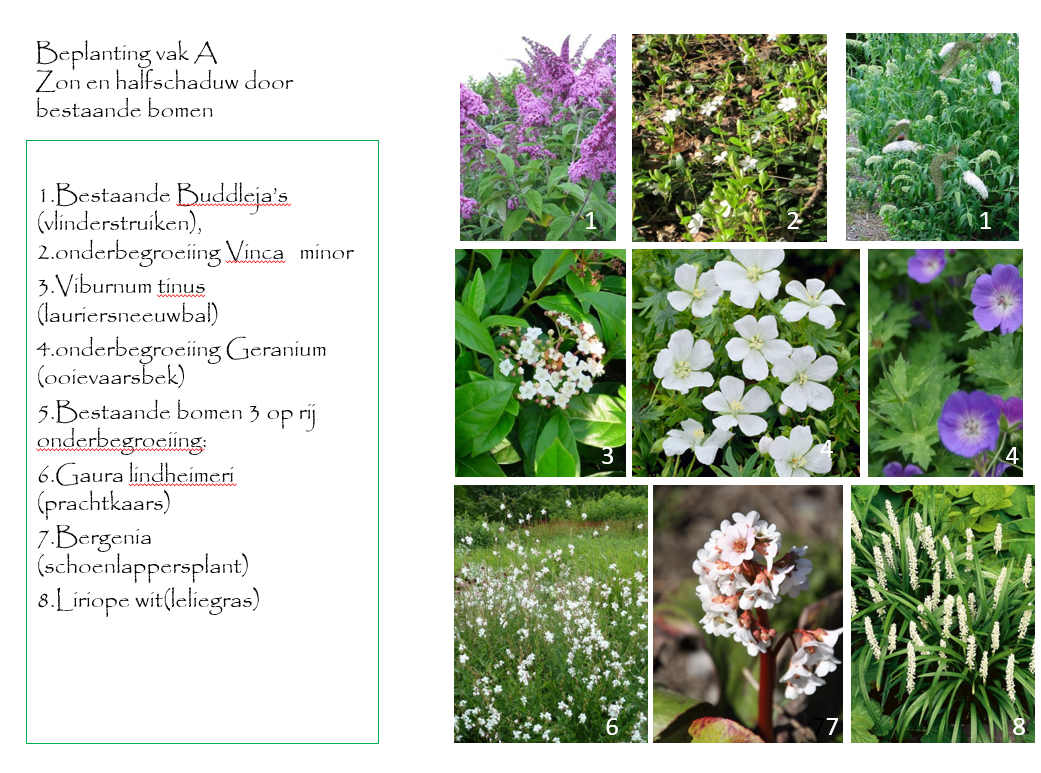 Beplanting vak A
Zon en halfschaduw door
bestaande bomen
1.Bestaande Buddleja's
(vlinderstruiken),
2.onderbegroeiing Vinca minor
3.Viburnum tinus
(lauriersneeuwbal)
4.onderbegroeiing Geranium
(ooievaarsbek)
5.Bestaande bomen 3 op rij
onderbegroeiing:
6.Gaura lindheimeri
(prachtkaars)
7.Bergenia
(schoenlappersplant)
8.Liriope wit(leliegras)
1
2
1
3
4
4
6
77
8